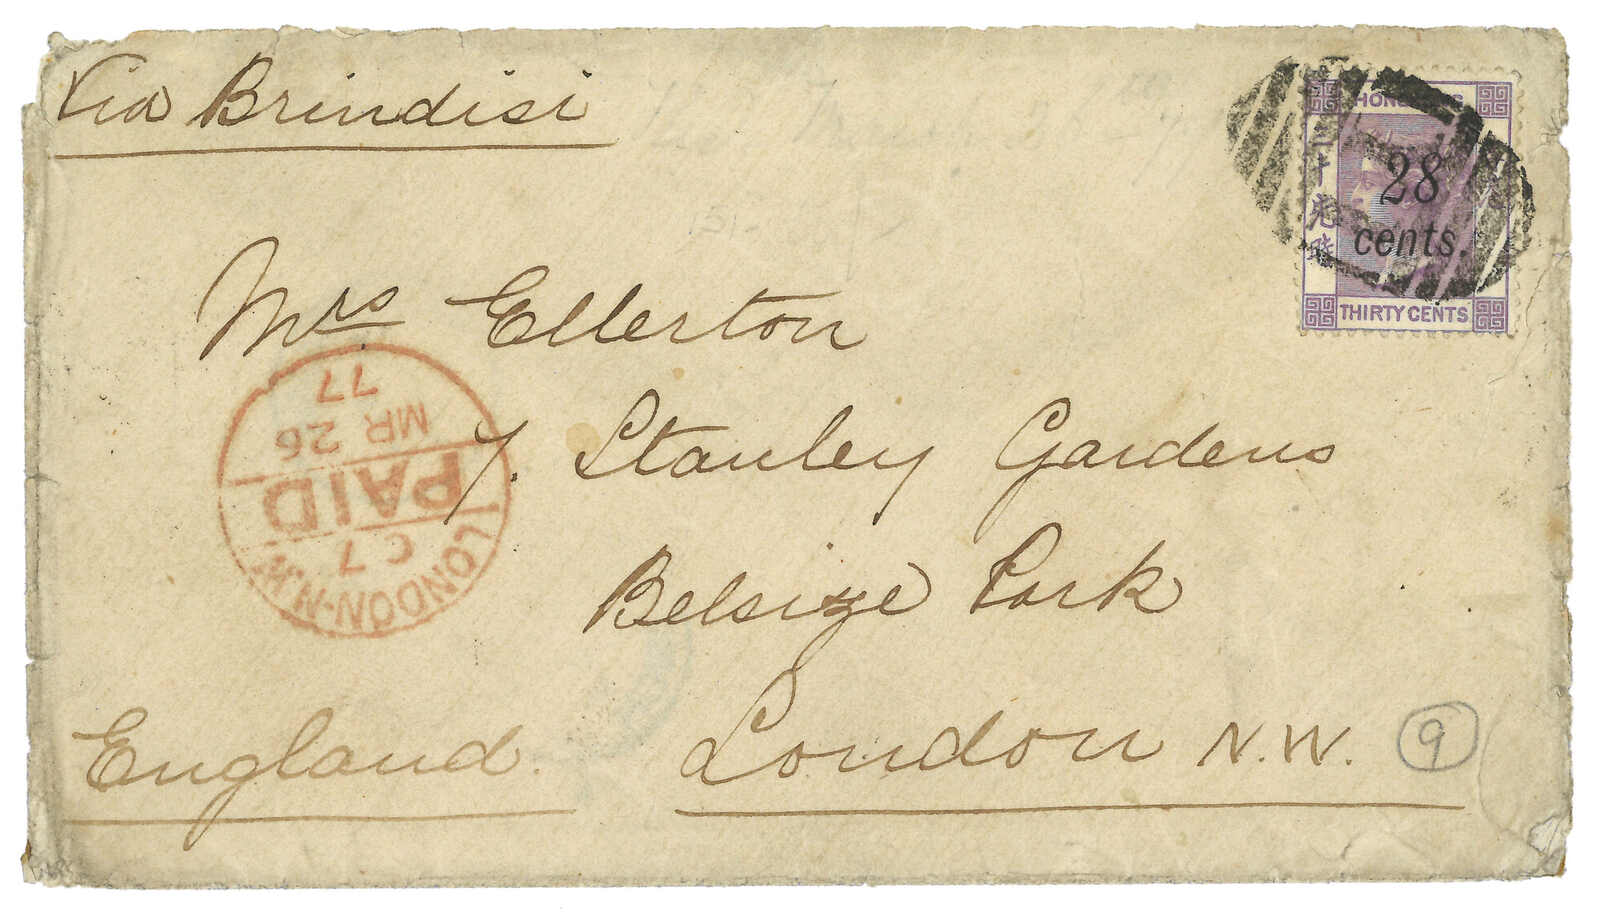 Via Brindisi
HONG KONG
28
cents.
THIRTY CENTS
Mrs Ellerton
7. Stanley Gardens
Belsize Park
London N.W.
England.
9
LONDON-N.W.
C 7
PAID
MR 26
77